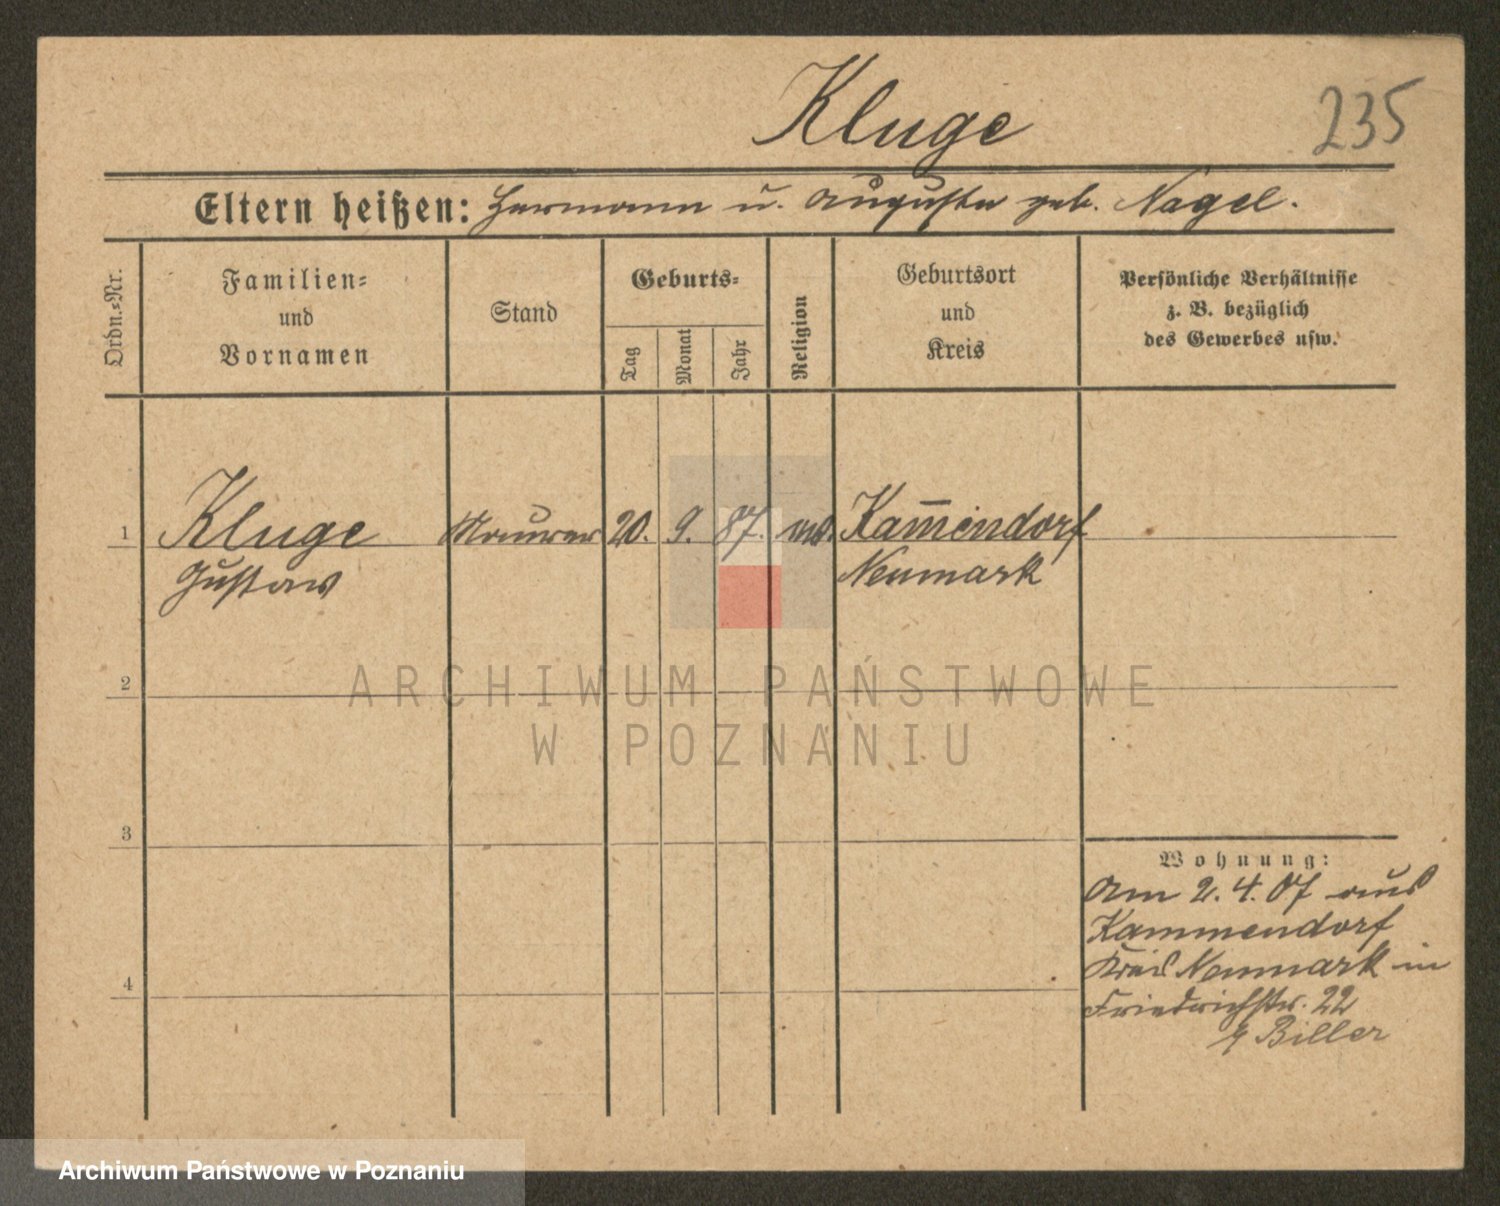 Kluge
235
Eltern heißen: Hermann u. Auguste geb. Nagel.
Ordn.-Nr.
Familien-
und
Vornamen
Stand
Geburts-
Tag
Monat
Jahr
Religion
Geburtsort
und
Kreis
Persönliche Verhältnisse
z. B. bezüglich
des Gewerbes usw.
1 Kluge Maurer 20. 9. 87. Kam̅endorf
Gustav Neumark
2
3
4
Wohnung:
Am 2. 4. 07 aus
Kammendorf
Kreis Neumark in
Friedrichstr. 22
Biller
ARCHIWUM PAŃSTWOWE
W POZNANIU
Archiwum Państwowe w Poznaniu